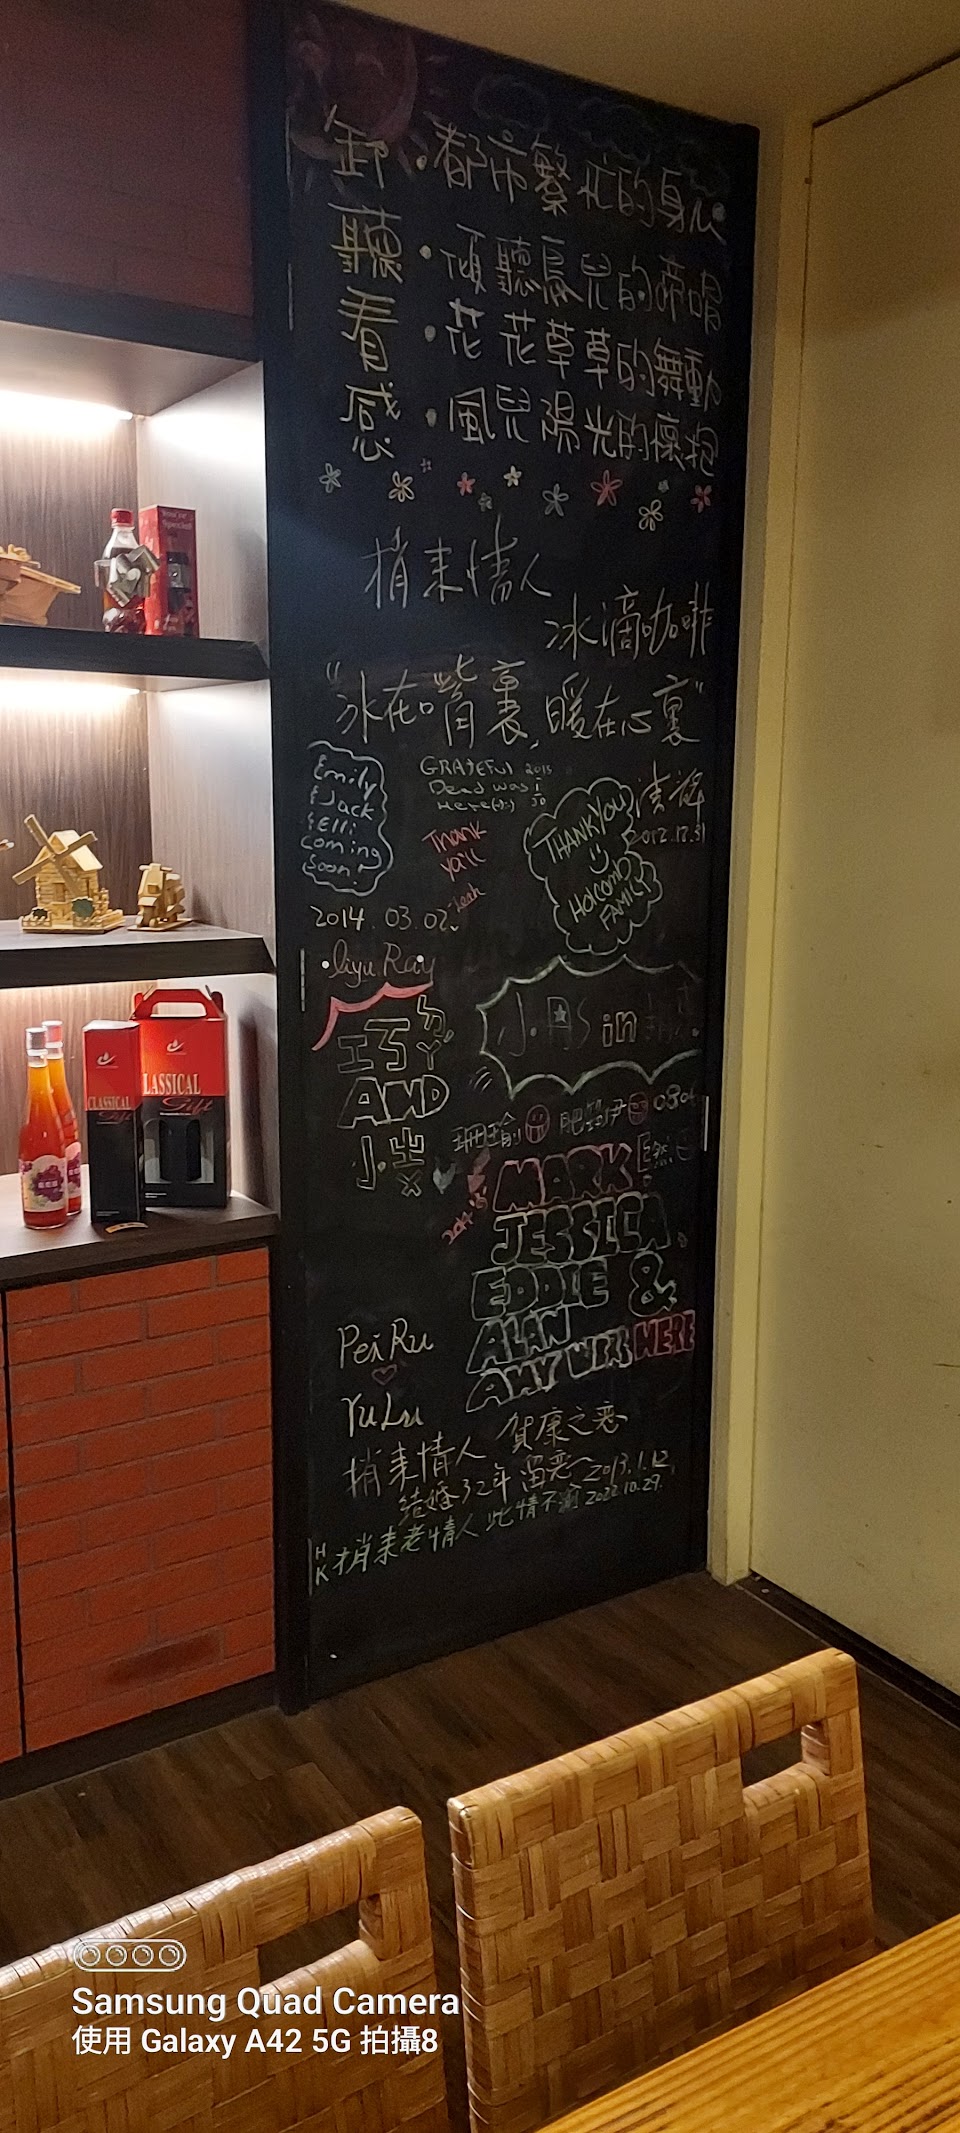 卸·都市繁忙的身心
聽·傾聽鳥兒的啼唱
看·花花草草的舞動
感·風兒陽光的懷抱
捎來情人
冰滴咖啡
"冰在嘴裏,暖在心裏"
Emily
& Jack
& Elli
Coming
Soon!
GRATEFUL 2015
Dead was
Here
Thank
ya'll
Leah
THANK YOU
HOLCOMB
FAMILY
2012.12.31
2014.03.02.
liyu Ray
ㄉㄚ
AND
小
小·As in
2014
MARK
JESSICA
EDDIE &
ALAN
AMY WERE HERE
Pei Ru
Yu Lu
捎來情人 賀康之戀
結婚32年 留戀 2013.1.12
HK 捎來老情人 此情不渝 2022.10.29.
You're
Special
CLASSICAL
Gift
LASSICAL
Gift
Samsung Quad Camera
使用 Galaxy A42 5G 拍攝8